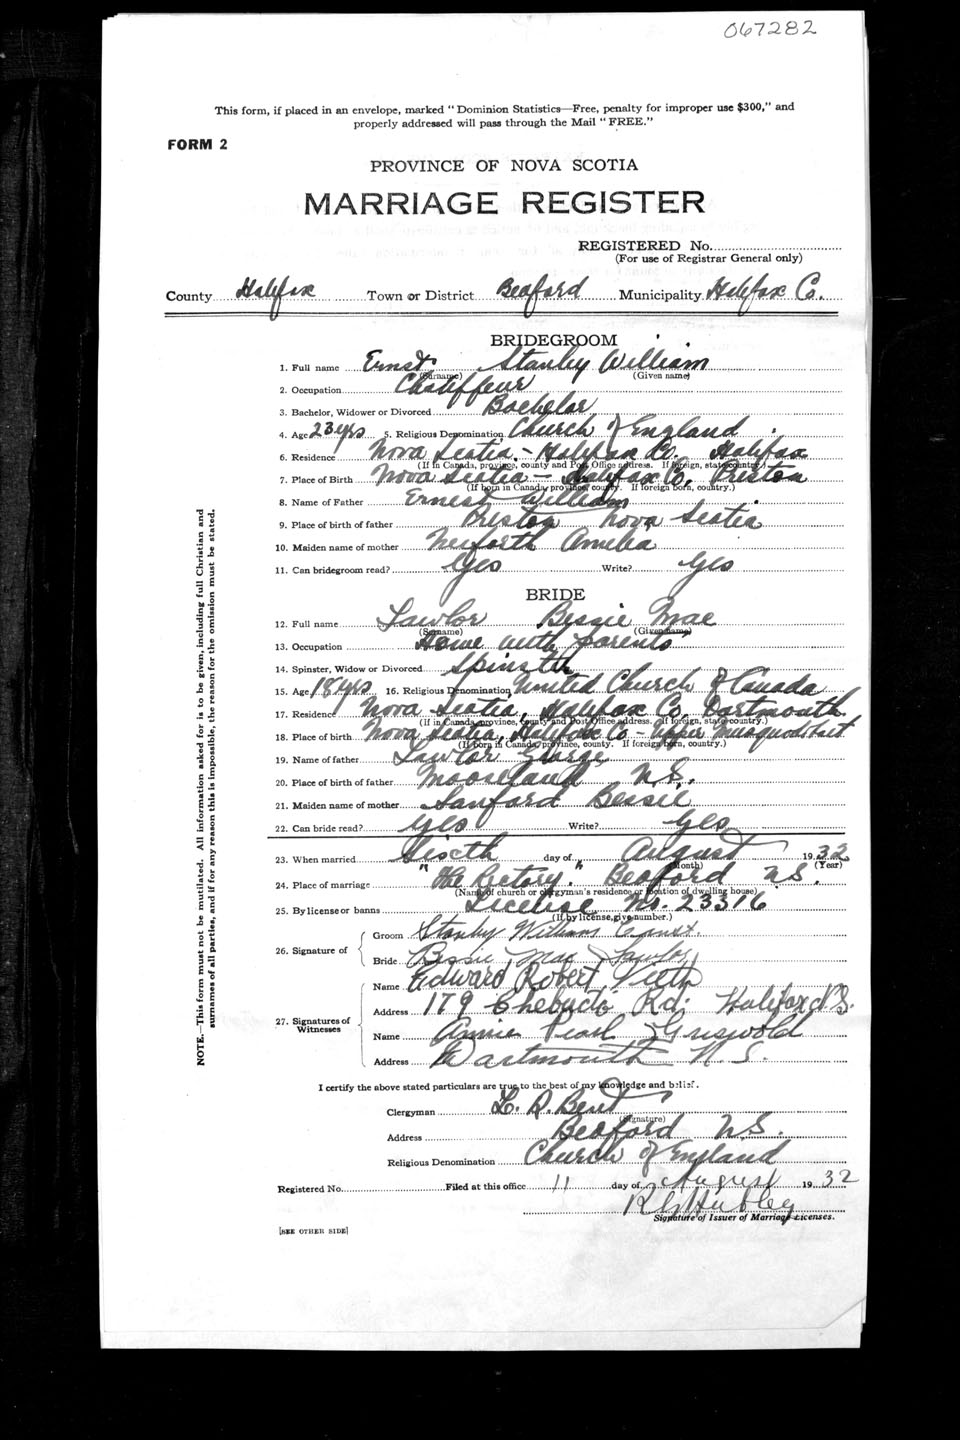 067282
This form, if placed in an envelope, marked "Dominion Statistics—Free, penalty for improper use $300," and
properly addressed will pass through the Mail "FREE."
FORM 2
PROVINCE OF NOVA SCOTIA
MARRIAGE REGISTER
REGISTERED No.
(For use of Registrar General only)
County Halifax Town or District Bedford Municipality Halifax Co.
BRIDEGROOM
1. Full name Ernst Stanley William
(Surname) (Given name)
2. Occupation Chauffeur
3. Bachelor, Widower or Divorced Bachelor
4. Age 23 yrs 5. Religious Denomination Church of England
6. Residence Nova Scotia - Halifax Co. Halifax
(If in Canada, province, county and Post Office address. If foreign, state country.)
7. Place of Birth Nova Scotia - Halifax Co. Preston
(If born in Canada, province, county. If foreign born, country.)
8. Name of Father Ernest William
9. Place of birth of father Preston Nova Scotia
10. Maiden name of mother Amelia
11. Can bridegroom read? Yes Write? Yes
BRIDE
12. Full name Lawlor Bessie Mae
(Surname) (Given name)
13. Occupation Home with parents
14. Spinster, Widow or Divorced Spinster
15. Age 18 yrs 16. Religious Denomination United Church of Canada
17. Residence Nova Scotia, Halifax Co. Dartmouth
(If in Canada, province, county and Post Office address. If foreign, state country.)
18. Place of birth Nova Scotia, Halifax Co - Upper Musquodoboit
(If born in Canada, province, county. If foreign born, country.)
19. Name of father Lawlor George
20. Place of birth of father Mooseland N.S.
21. Maiden name of mother Sanford Bessie
22. Can bride read? Yes Write? Yes
23. When married Sixth day of August 1932
(Month) (Year)
24. Place of marriage "The Rectory," Bedford N.S.
(Name of church or clergyman's residence or location of dwelling house)
25. By license or banns License No. 23316
(If by license, give number.)
26. Signature of
Groom Stanley William Ernst
Bride Bessie Mae Lawlor
27. Signatures of Witnesses
Name Edward Robert Veith
Address 179 Chebucto Rd. Halifax N.S.
Name Annie Pearl Griswold
Address Dartmouth N.S.
I certify the above stated particulars are true to the best of my knowledge and belief.
Clergyman L. D. Bent
(Signature)
Address Bedford N.S.
Religious Denomination Church of England
Registered No. Filed at this office 11 day of August 1932
Signature of Issuer of Marriage Licenses.
[SEE OTHER SIDE]
NOTE.—This form must not be mutilated. All information asked for is to be given, including full Christian and
surnames of all parties, and if for any reason this is impossible, the reason for the omission must be stated.